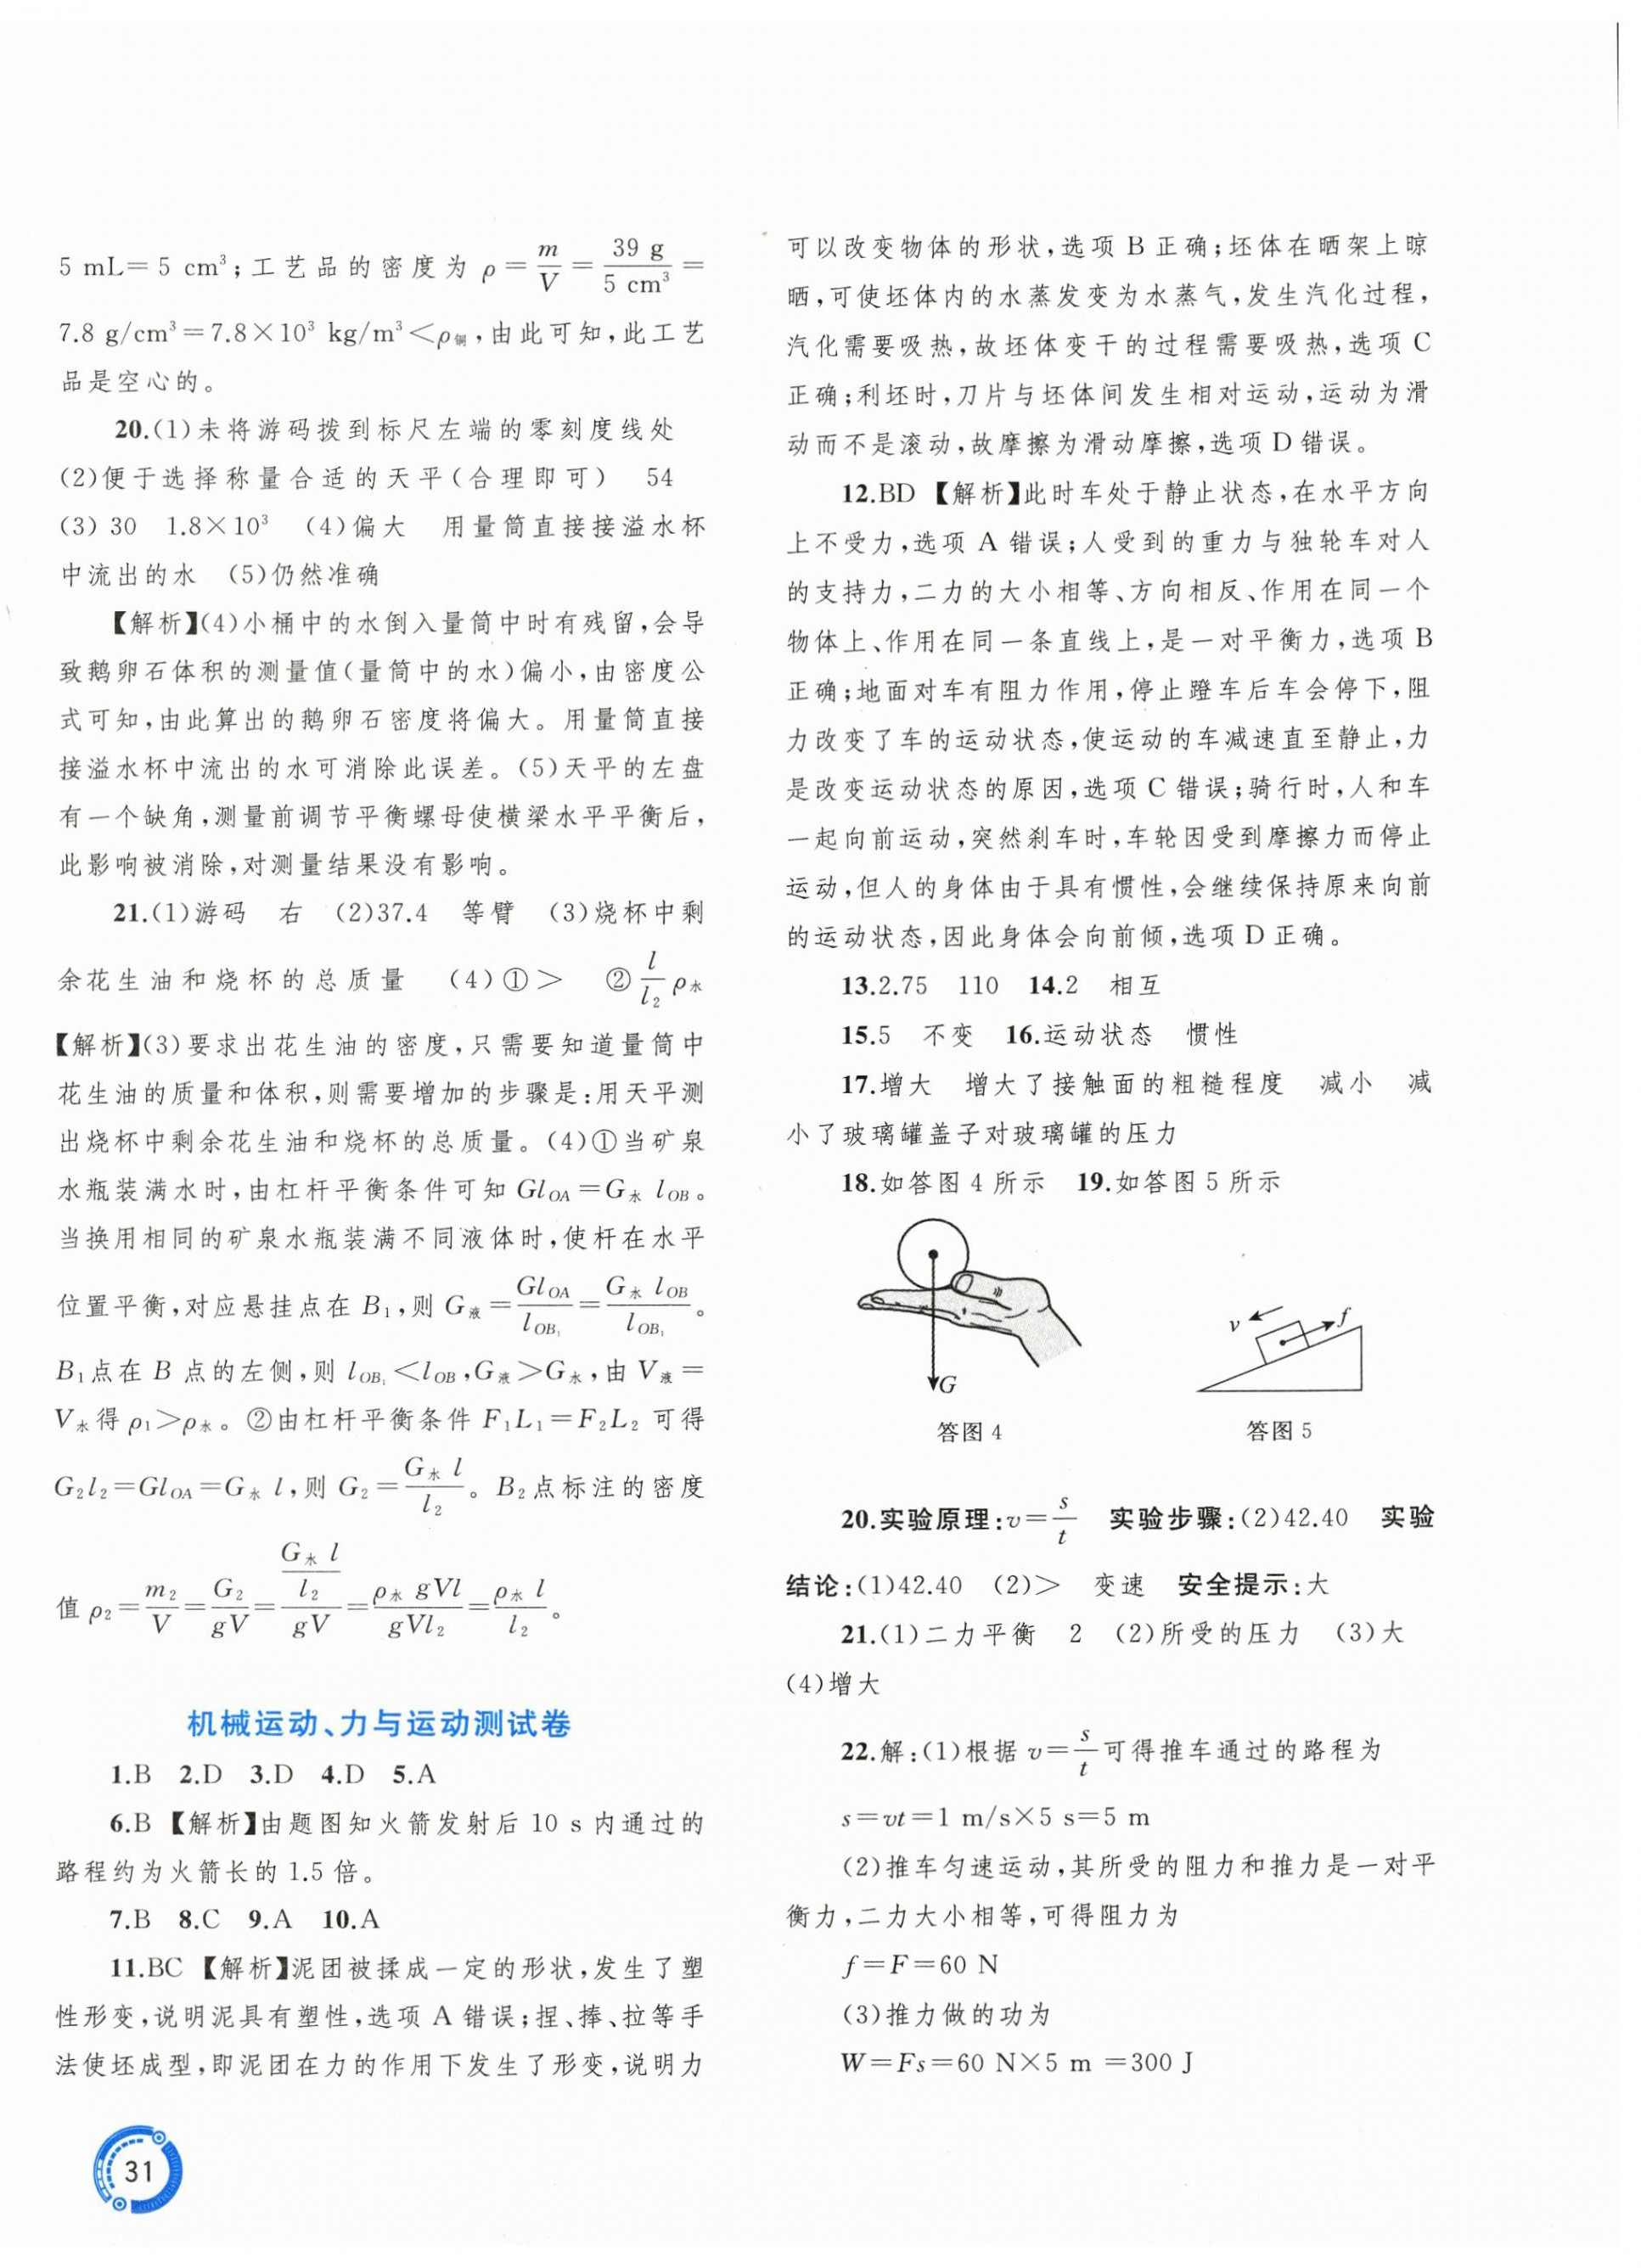 5 mL=5 cm³;工艺品的密度为 ρ=m/V=39 g/5 cm³=
7.8 g/cm³=7.8×10³ kg/m³<ρ铜,由此可知,此工艺
品是空心的。
20.(1)未将游码拨到标尺左端的零刻度线处
(2)便于选择称量合适的天平(合理即可) 54
(3) 30 1.8×10³ (4)偏大 用量筒直接接溢水杯
中流出的水 (5)仍然准确
【解析】(4)小桶中的水倒入量筒中时有残留,会导
致鹅卵石体积的测量值(量筒中的水)偏小,由密度公
式可知,由此算出的鹅卵石密度将偏大。用量筒直接
接溢水杯中流出的水可消除此误差。(5)天平的左盘
有一个缺角,测量前调节平衡螺母使横梁水平平衡后,
此影响被消除,对测量结果没有影响。
21.(1)游码 右 (2)37.4 等臂 (3)烧杯中剩
余花生油和烧杯的总质量 (4)①> ②l/l₂ρ水
【解析】(3)要求出花生油的密度,只需要知道量筒中
花生油的质量和体积,则需要增加的步骤是:用天平测
出烧杯中剩余花生油和烧杯的总质量。(4)①当矿泉
水瓶装满水时,由杠杆平衡条件可知 GlOA=G水 lOB。
当换用相同的矿泉水瓶装满不同液体时,使杆在水平
位置平衡,对应悬挂点在 B₁,则 G液=GlOA/lOB₁=G水 lOB/lOB₁。
B₁点在 B 点的左侧,则 lOB₁<lOB,G液>G水,由 V液=
V水得 ρ₁>ρ水。②由杠杆平衡条件 F₁L₁=F₂L₂ 可得
G₂l₂=GlOA=G水 l,则 G₂=G水 l/l₂。B₂点标注的密度
值 ρ₂=m₂/V=G₂/gV=(G水 l/l₂)/gV=ρ水 gVl/gVl₂=ρ水 l/l₂。
机械运动、力与运动测试卷
1.B 2.D 3.D 4.D 5.A
6.B 【解析】由题图知火箭发射后 10 s 内通过的
路程约为火箭长的 1.5 倍。
7.B 8.C 9.A 10.A
11.BC 【解析】泥团被揉成一定的形状,发生了塑
性形变,说明泥具有塑性,选项 A 错误;捏、捧、拉等手
法使坯成型,即泥团在力的作用下发生了形变,说明力
31
可以改变物体的形状,选项 B 正确;坯体在晒架上晾
晒,可使坯体内的水蒸发变为水蒸气,发生汽化过程,
汽化需要吸热,故坯体变干的过程需要吸热,选项 C
正确;利坯时,刀片与坯体间发生相对运动,运动为滑
动而不是滚动,故摩擦为滑动摩擦,选项 D 错误。
12.BD 【解析】此时车处于静止状态,在水平方向
上不受力,选项 A 错误;人受到的重力与独轮车对人
的支持力,二力的大小相等、方向相反、作用在同一个
物体上、作用在同一条直线上,是一对平衡力,选项 B
正确;地面对车有阻力作用,停止蹬车后车会停下,阻
力改变了车的运动状态,使运动的车减速直至静止,力
是改变运动状态的原因,选项 C 错误;骑行时,人和车
一起向前运动,突然刹车时,车轮因受到摩擦力而停止
运动,但人的身体由于具有惯性,会继续保持原来向前
的运动状态,因此身体会向前倾,选项 D 正确。
13.2.75 110 14.2 相互
15.5 不变 16.运动状态 惯性
17.增大 增大了接触面的粗糙程度 减小 减
小了玻璃罐盖子对玻璃罐的压力
18.如答图 4 所示 19.如答图 5 所示
G
v f
答图 4 答图 5
20.实验原理:v=s/t 实验步骤:(2)42.40 实验
结论:(1)42.40 (2)> 变速 安全提示:大
21.(1)二力平衡 2 (2)所受的压力 (3)大
(4)增大
22.解:(1)根据 v=s/t可得推车通过的路程为
s=vt=1 m/s×5 s=5 m
(2)推车匀速运动,其所受的阻力和推力是一对平
衡力,二力大小相等,可得阻力为
f=F=60 N
(3)推力做的功为
W=Fs=60 N×5 m =300 J